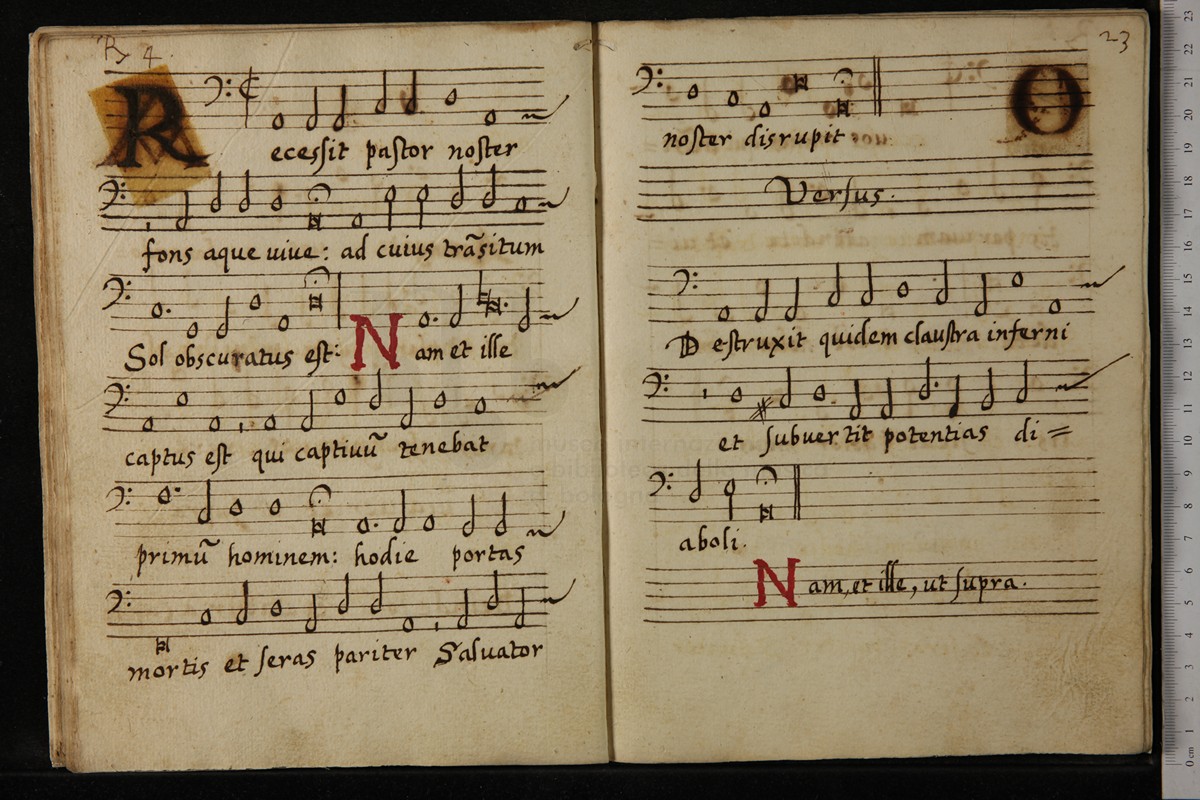 ℟ 4.
Recessit pastor noster
fons aque uiue: ad cuius trāsitum
Sol obscuratus est: Nam et ille
captus est qui captiuū tenebat
primū hominem: hodie portas
mortis et seras pariter Saluator
23
noster disrupit
O
Versus.
Destruxit quidem claustra inferni
et subuertit potentias di=
aboli.
Nam, et ille, ut supra.
museo internaz
biblioteca della musica
bologna